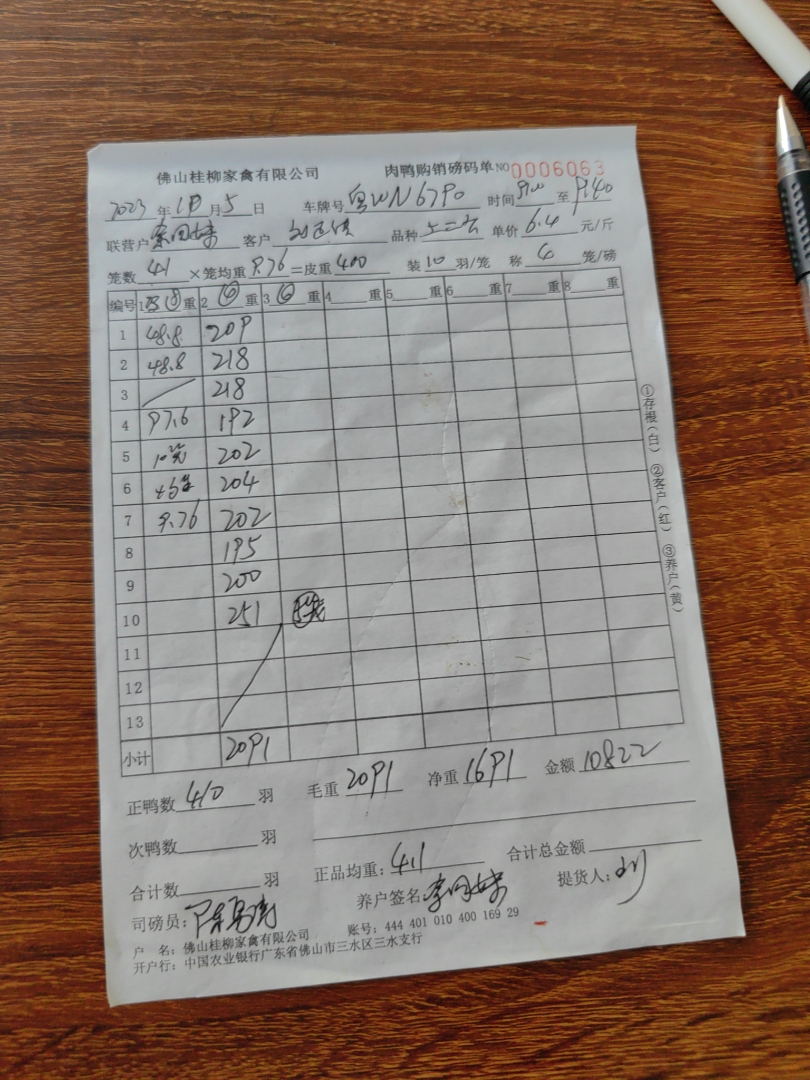 佛山桂柳家禽有限公司 肉鸭购销磅码单 NO 0006063
2023 年 月 5 日 车牌号 粤WN6790 时间 9:00 至 9:40
联营户 客户 品种 单价 6.4 元/斤
笼数 41 ×笼均重 9.76 =皮重 400 装 10 羽/笼 称 笼/磅
编号 1 重 2 重 3 重 4 重 5 重 6 重 7 重 8 重
1 48.8 209
2 48.8 218
3 218
4 97.6 192
5 10笼 202
6 204
7 9.76 202
8 195
9 200
10 251
11
12
13
小计 2091
正鸭数 410 羽 毛重 2091 净重 1691 金额 10822
次鸭数 羽
合计数 羽 正品均重: 4.11 合计总金额
司磅员: 养户签名: 提货人:
户 名: 佛山桂柳家禽有限公司 账号: 444 401 010 400 169 29
开户行: 中国农业银行广东省佛山市三水区三水支行
①存根(白) ②客户(红) ③养户(黄)